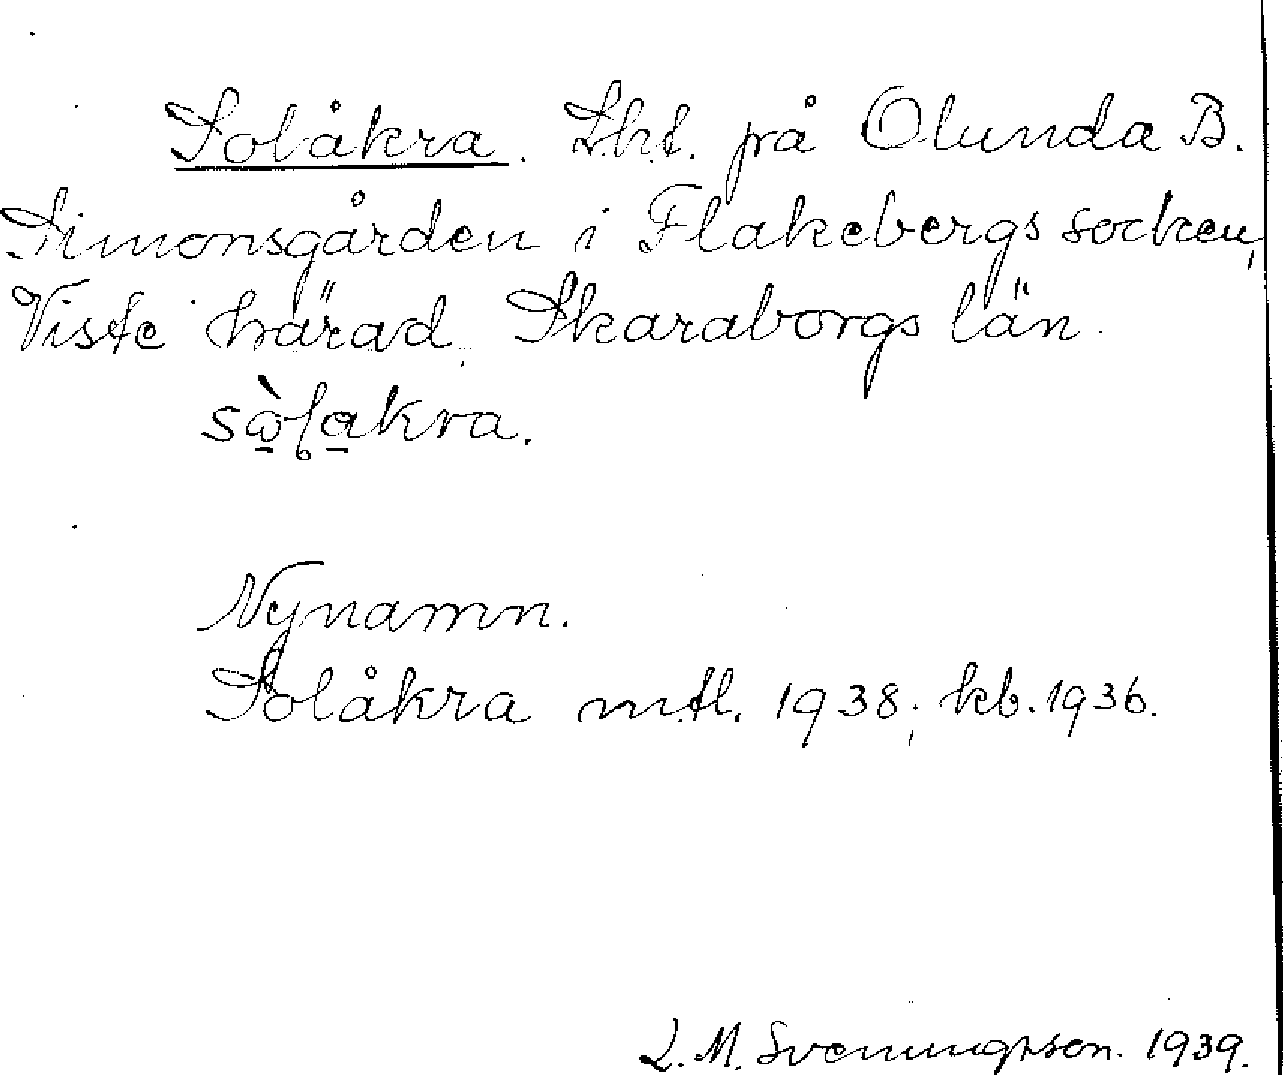 Solåkra. Lht. på Olunda B.
Simonsgården i Flakebergs socken,
Viste härad, Skaraborgs län.
sὼlakra.
Nynamn.
Solåkra mtl. 1938; kb. 1936.
L. M. Svenungsson. 1939.